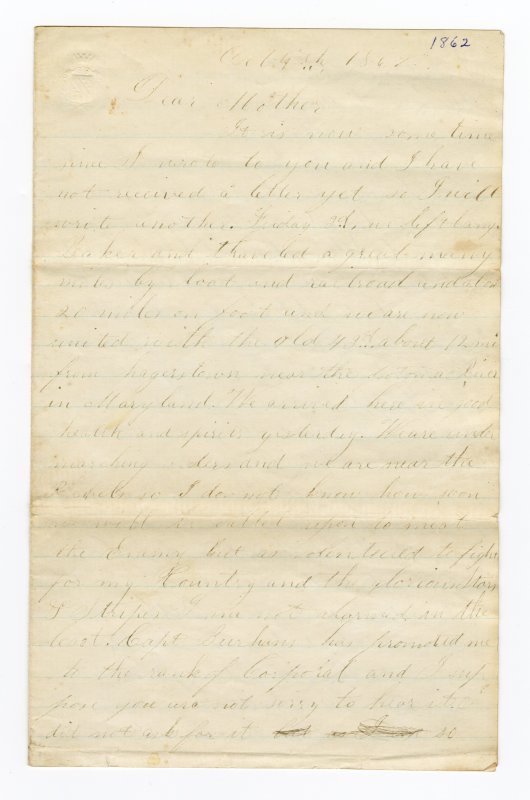 1862
Oct 9th 1862
Dear Mother
It is now some time
since I wrote to you and I have
not received a letter yet so I will
write another. Friday 3d, we left Camp
and traveled a great many
miles by boat and railroad and also
20 miles on foot and we are now
united with the old 43d about 12 mi
from hagerstown near the River
in Maryland. We arrived here in good
health and spirits yesterday. We are under
marching orders and we are near the
Rebels so I do not know how soon
we will be called upon to meet
the Enemy but as I volenteered to fight
for my Country and the glorious Stars
& Stripes I am not alarmed in the
least. Capt has promoted me
to the rank of Corporal and I sup
pose you are not sorry to hear it. I
did not ask for it so